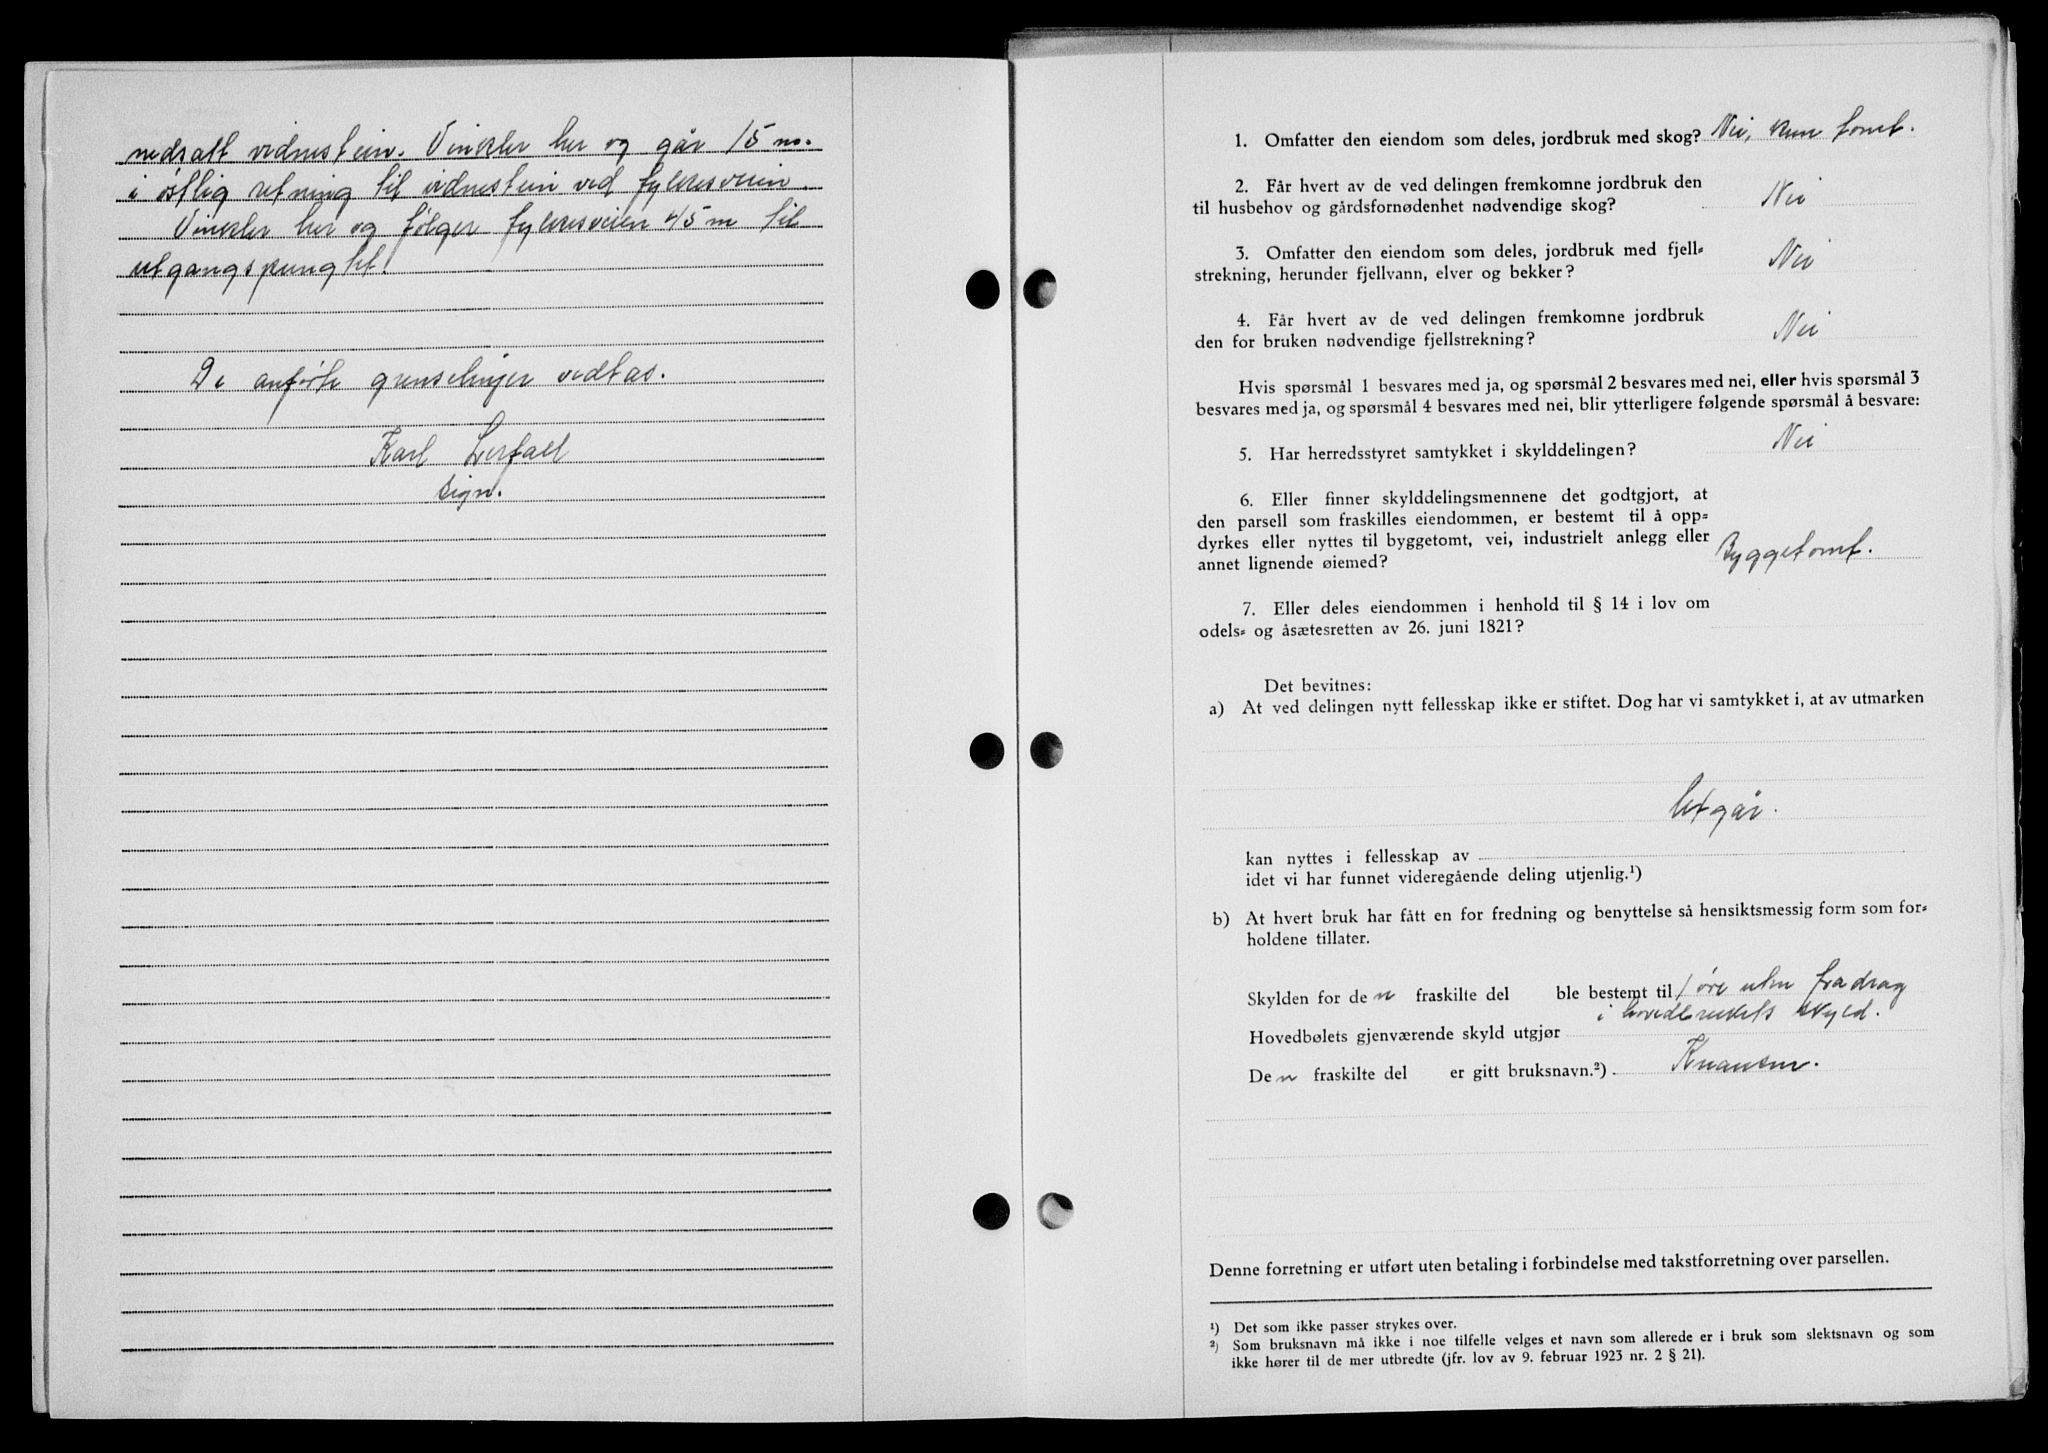 nedsatt vidnestein. Vinkler her og går 15 m.
i østlig retning til vidnestein ved fylkesveien.
Vinkler her og følger fylkesveien 45 m til
utgangspunktet.
De anførte grenselinjer vedtas.
Karl Lerfall
sign.
1. Omfatter den eiendom som deles, jordbruk med skog? Nei, kun tomt.
2. Får hvert av de ved delingen fremkomne jordbruk den
til husbehov og gårdsfornødenhet nødvendige skog? Nei
3. Omfatter den eiendom som deles, jordbruk med fjell-
strekning, herunder fjellvann, elver og bekker? Nei
4. Får hvert av de ved delingen fremkomne jordbruk
den for bruken nødvendige fjellstrekning? Nei
Hvis spørsmål 1 besvares med ja, og spørsmål 2 besvares med nei, eller hvis spørsmål 3
besvares med ja, og spørsmål 4 besvares med nei, blir ytterligere følgende spørsmål å besvare:
5. Har herredsstyret samtykket i skylddelingen? Nei
6. Eller finner skylddelingsmennene det godtgjort, at
den parsell som fraskilles eiendommen, er bestemt til å opp-
dyrkes eller nyttes til byggetomt, vei, industrielt anlegg eller
annet lignende øiemed? Byggetomt.
7. Eller deles eiendommen i henhold til § 14 i lov om
odels- og åsætesretten av 26. juni 1821?
Det bevitnes:
a) At ved delingen nytt fellesskap ikke er stiftet. Dog har vi samtykket i, at av utmarken
Utgår.
kan nyttes i fellesskap av
idet vi har funnet videregående deling utjenlig.¹)
b) At hvert bruk har fått en for fredning og benyttelse så hensiktsmessig form som for-
holdene tillater.
Skylden for den fraskilte del ble bestemt til 1 øre uten fradrag
i hovedbrukets skyld.
Hovedbølets gjenværende skyld utgjør
Den fraskilte del er gitt bruksnavn.²)
Denne forretning er utført uten betaling i forbindelse med takstforretning over parsellen.
¹) Det som ikke passer strykes over.
²) Som bruksnavn må ikke i noe tilfelle velges et navn som allerede er i bruk som slektsnavn og som
ikke hører til de mer utbredte (jfr. lov av 9. februar 1923 nr. 2 § 21).